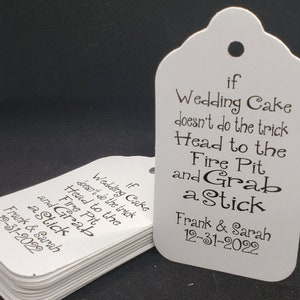 if
Wedding Cake
doesn't do the trick
Head to the
Fire Pit
and Grab
a Stick
Frank & Sarah
12-31-2022
if
Wedding Cake
doesn't do the trick
Head to the
Fire Pit
and Grab
a Stick
Frank & Sarah
12-31-2022